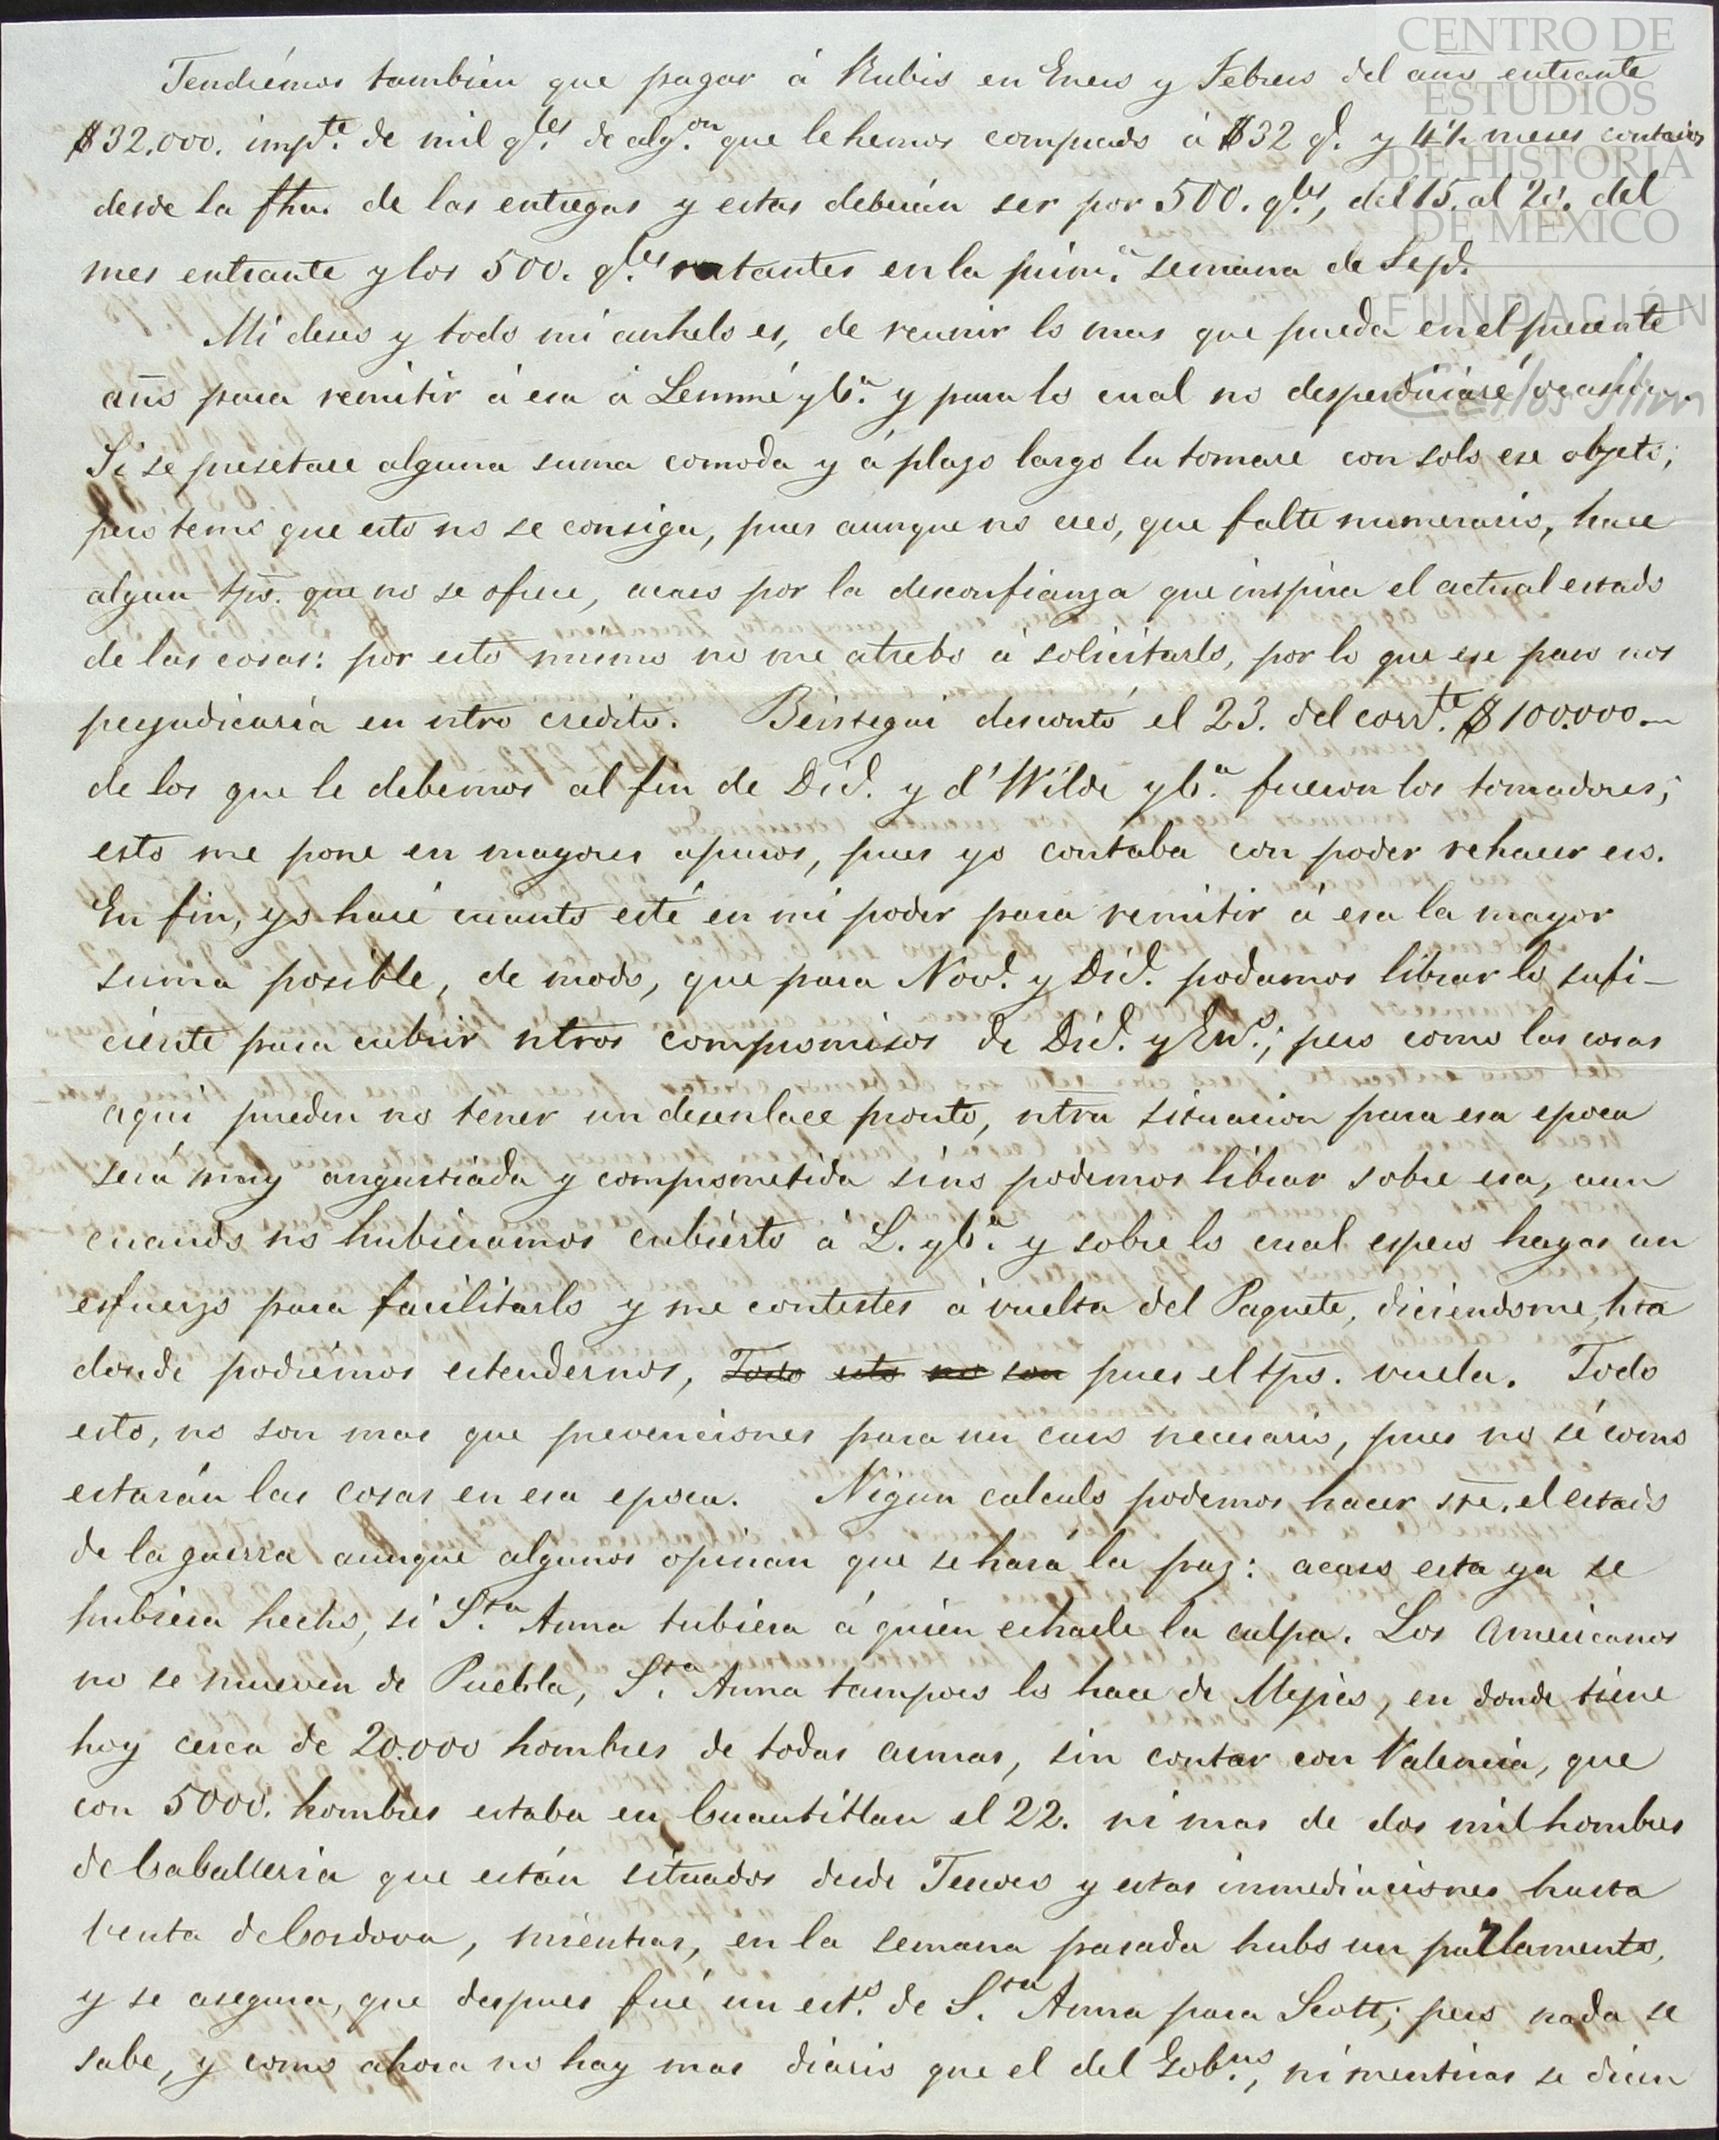 CENTRO DE
ESTUDIOS
DE HISTORIA
DE MÉXICO
FUNDACIÓN
Carlos Slim
Tendrémos tambien que pagar á Rubio en Enero y Febrero del año entrante
$32.000. impte. de mil qles. de algon. que le hemos comprado á $32 ql. y 4½ meses contados
desde la fha. de las entregas y estas deberán ser por 500. qles, del 15. al 20. del
mes entrante y los 500. qles. restantes en la prima. semana de Sepe.
Mi deseo y todo mi anhelo es, de reunir lo mas que pueda en el presente
año para remitir á esa á Lemmé y Ca. y para lo cual no desperdiciaré ocasion.
Si se presetase alguna suma comoda y á plazo largo la tomaré con solo ese objeto;
pero temo que esto no se consiga, pues aunque no creo, que falte numerario, hace
algun tpo. que no se ofrece, acaso por la desconfianza que inspira el actual estado
de las cosas: por esto mismo no me atrebo á solicitarlo, por lo que ese paso nos
perjudicaria en ntro credito. Beistegui descontó el 23. del corrte. $100.000.—
de los que le debemos al fin de Dice. y d'Wilde y Ca. fueron los tomadores;
esto me pone en mayores apuros, pues yo contaba con poder rehacer eso.
En fin, yo haré cuanto esté en mi poder para remitir á esa la mayor
suma posible, de modo, que para Nove. y Dice. podamos librar lo sufi-
ciente para cubrir ntros compromisos de Dice. y Eno.; pero como las cosas
aqui pueden no tener un desenlace pronto, ntra situacion para esa epoca
será muy angustiada y comprometida sino podemos librar sobre esa, aun
cuando no hubieramos cubierto á L. y Ca. y sobre lo cual espero hagas un
esfuerzo para facilitarlo y me contestes á vuelta del Paquete, diciendome, hta
donde podrémos estendernos, Todo esto no son pues el tpo. vuela. Todo
esto, no son mas que prevenciones para un caso necesario, pues no sé como
estarán las cosas en esa epoca. Nigun calculo podemos hacer sre. el estado
de la guerra aunque algunos opinan que se hará la paz: acaso esta ya se
hubiera hecho, si Sta. Anna tubiera á quien echarle la culpa. Los Americanos
no se mueven de Puebla, Sta. Anna tampoco lo hace de Mejico, en donde tiene
hoy cerca de 20.000 hombres de todas armas, sin contar con Valencia, que
con 5000. hombres estaba en Cuautitlan el 22. ni mas de dos mil hombres
de Caballeria que están situados desde Tescoco y estas inmediaciones hasta
Venta de Cordova, mientras, en la semana pasada hubo un parlamento,
y se asegura, que despues fué un esto. de Sta. Anna para Scott; pero nada se
sabe, y como ahora no hay mas diario que el del Gobno., ni mentiras se dicen